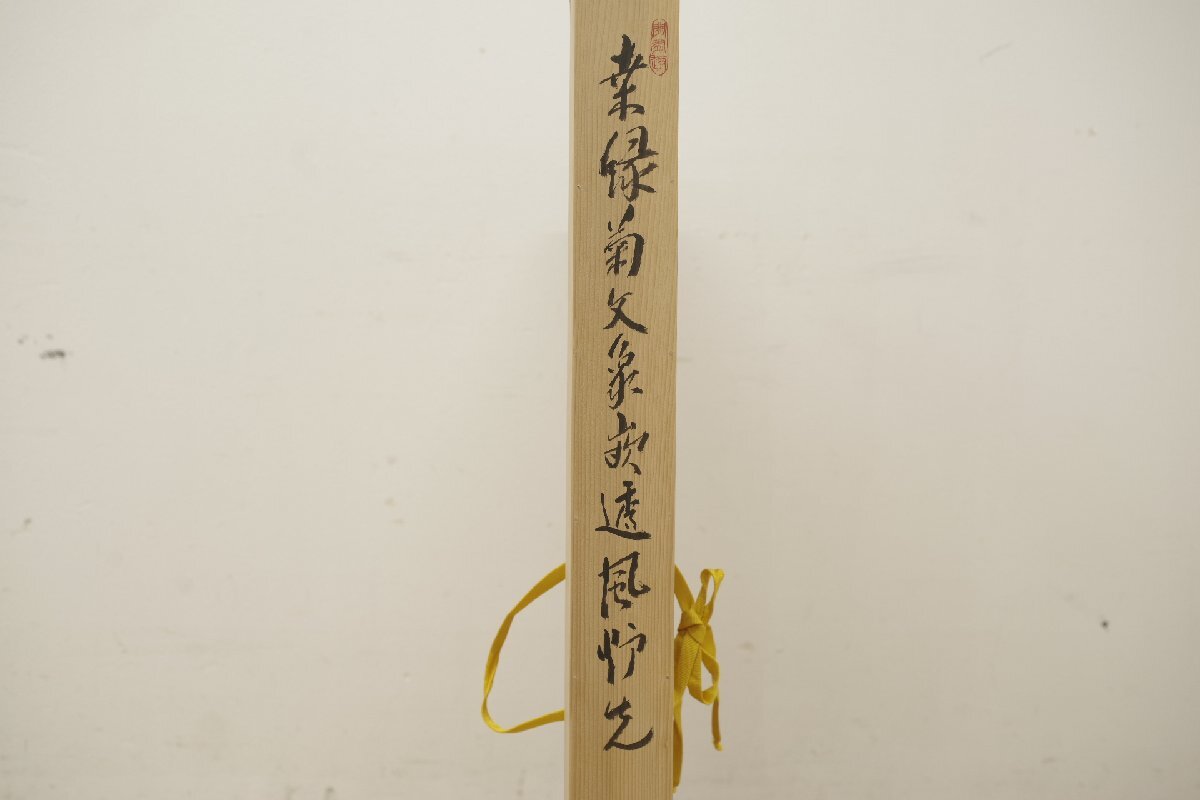 桒縁菊文象嵌透風炉先